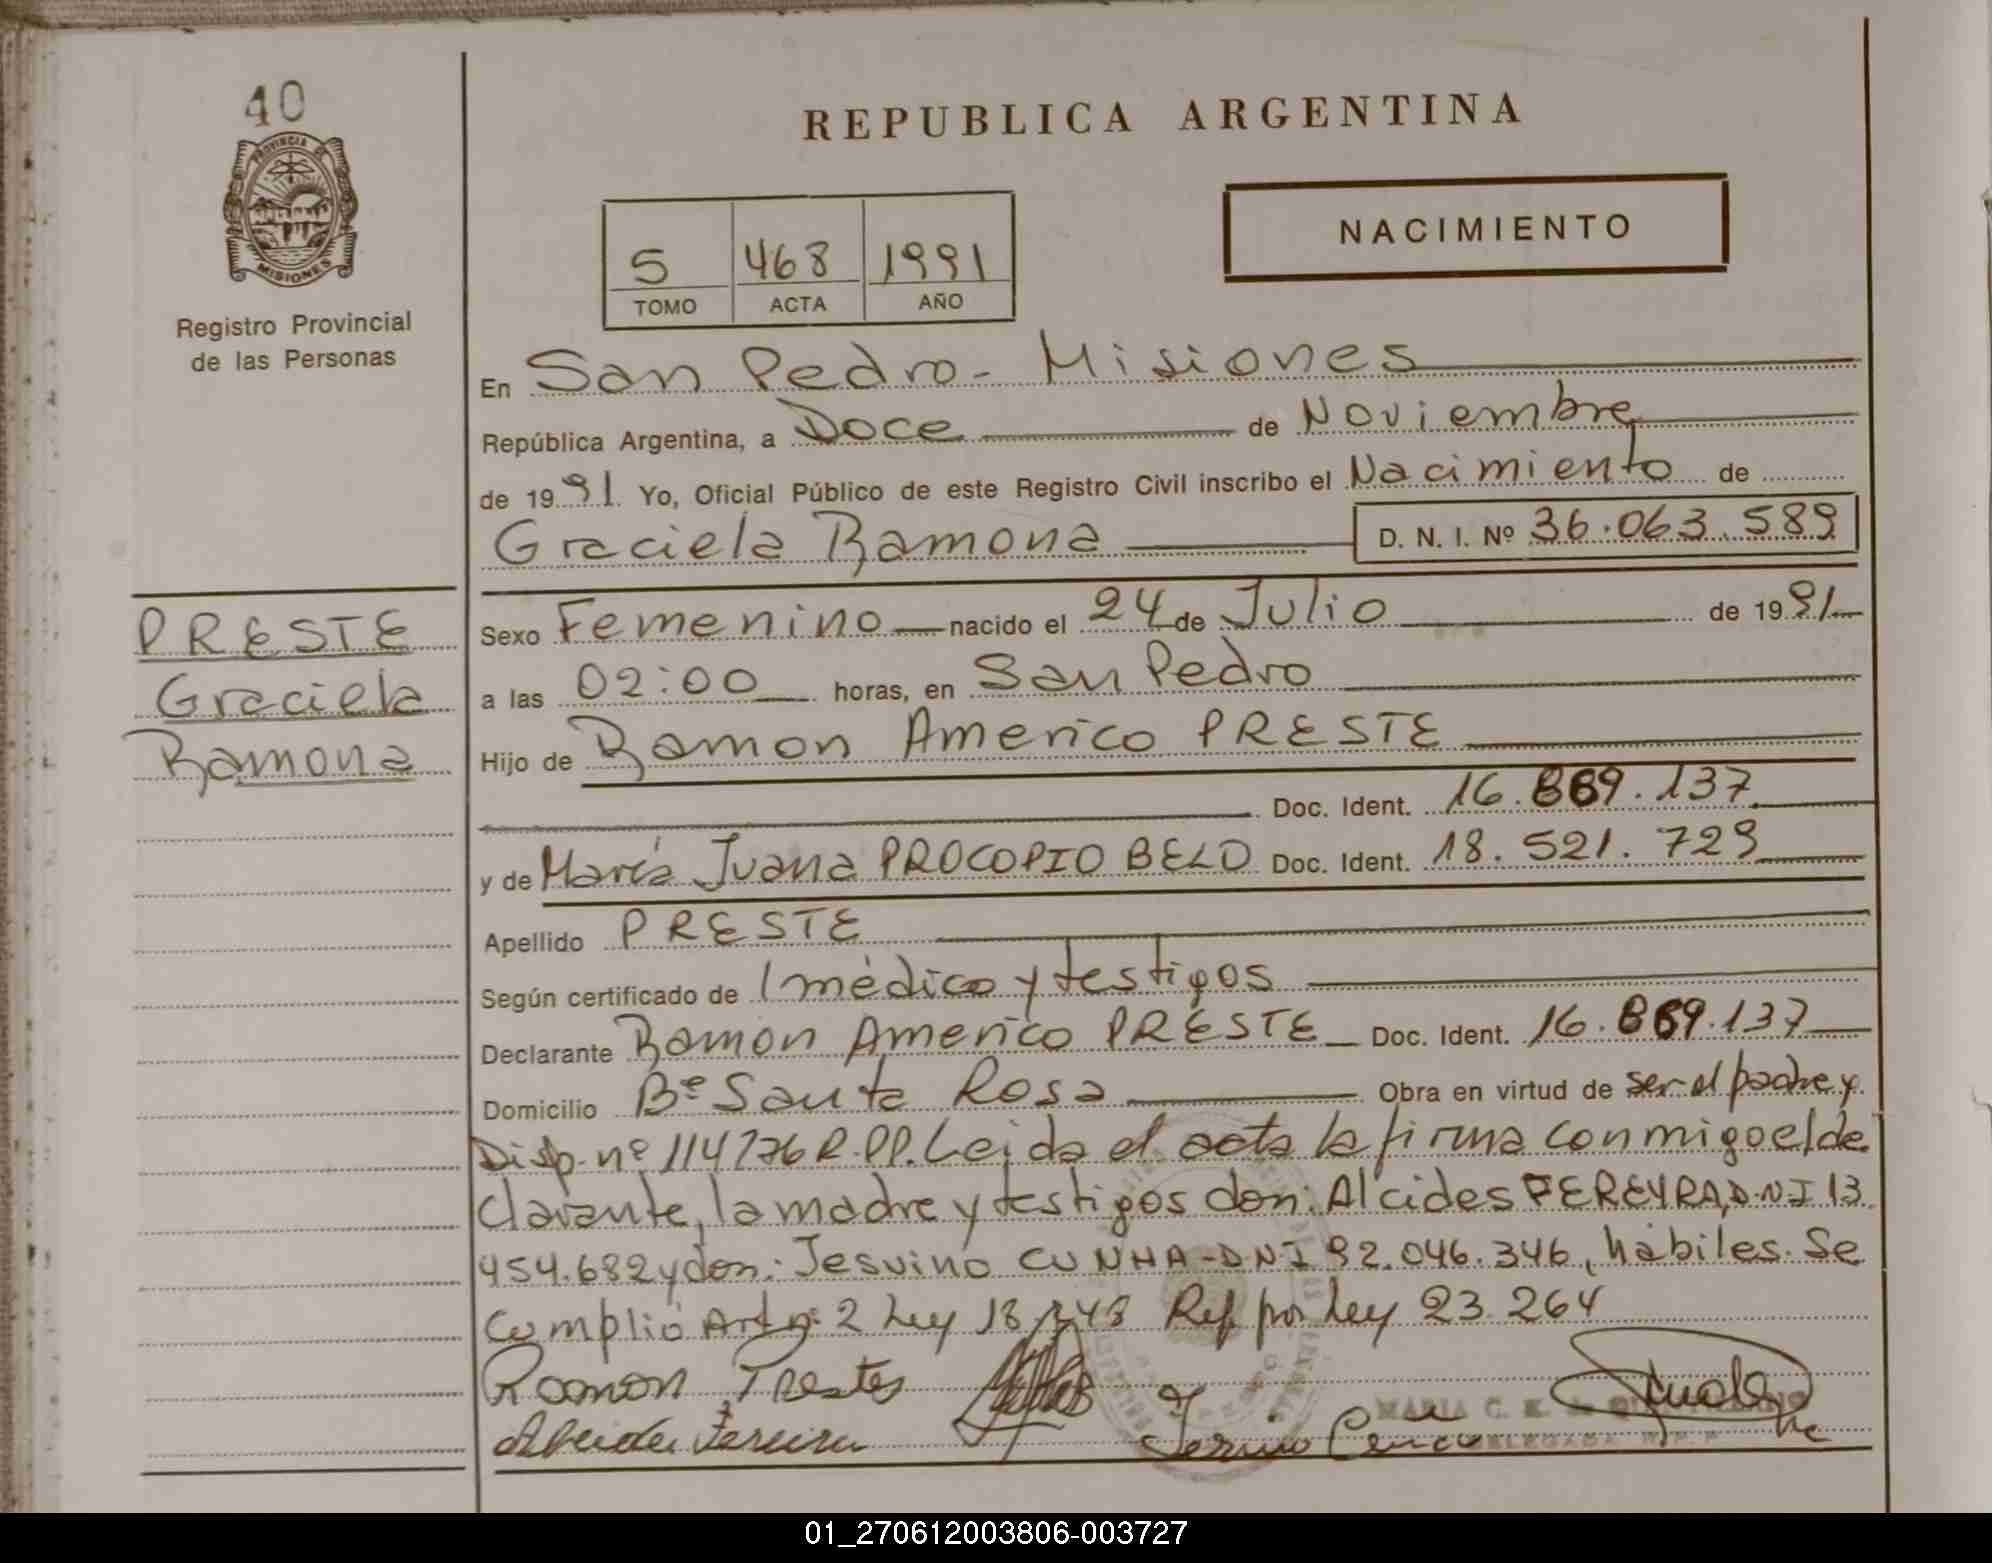 40
PROVINCIA DE
MISIONES
Registro Provincial
de las Personas
PRESTE
Graciela
Ramona
REPUBLICA ARGENTINA
NACIMIENTO
5 468 1991
TOMO ACTA AÑO
En San Pedro - Misiones
República Argentina, a Doce de Noviembre
de 1991. Yo, Oficial Público de este Registro Civil inscribo el Nacimiento de
Graciela Ramona D. N. I. Nº 36.063.589
Sexo Femenino nacido el 24 de Julio de 1991
a las 02:00 horas, en San Pedro
Hijo de Ramon Americo PRESTE
Doc. Ident. 16.869.137
y de María Juana PROCOPIO BELO Doc. Ident. 18.521.729
Apellido PRESTE
Según certificado de 1 médico y testigos
Declarante Ramon Americo PRESTE Doc. Ident. 16.869.137
Domicilio Bº Santa Rosa Obra en virtud de ser el padre y
Disp. nº 114/76 R.PP. Leida el acta la firma conmigo el de
clarante, la madre y testigos don: Alcides PEREYRA, D.N.I 13.
454.682 y don: Jesuino CUNHA - DNI 92.046.346, hábiles. Se
Cumplió Art nº 2 Ley 18.248 Ref por Ley 23.264
Ramon Prestes
MARIA C. K.
DELEGADA R.P.P.
01_270612003806-003727